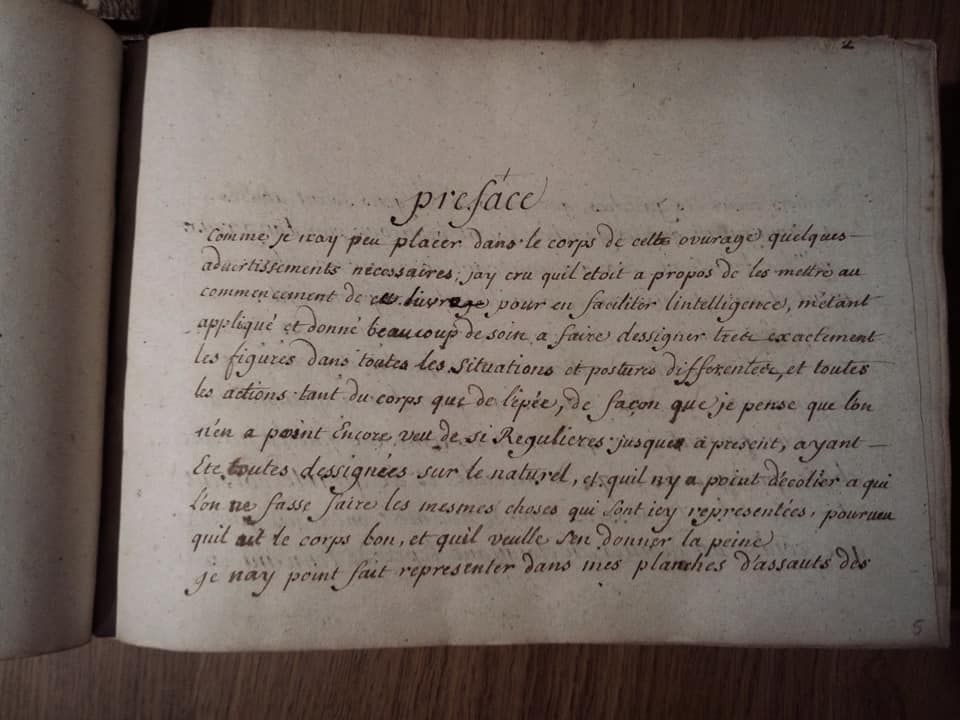 2
preface
Comme je n'ay peu placer dans le corps de cette ouvrage quelques
advertissements nécessaires, jay cru quil etoit a propos de les mettre au
commencement de livrage pour en faciliter lintelligence, m'étant
appliqué et donné beaucoup de soin a faire dessigner exactement
les figures dans toutes les situations et postures differentes, et toutes
les actions tant du corps que de l'épée, de façon que je pense que l'on
n'en a point Encore veu de si Regulieres jusques à present, ayant
Ete toutes dessignées sur le naturel, et quil ny a point d'écolier a qui
l'on ne fasse faire les mesmes choses qui sont icy representées, pourveu
quil ait le corps bon, et quil veulle s'en donner la peine
je nay point fait répresenter dans mes planches d'assauts dès
5